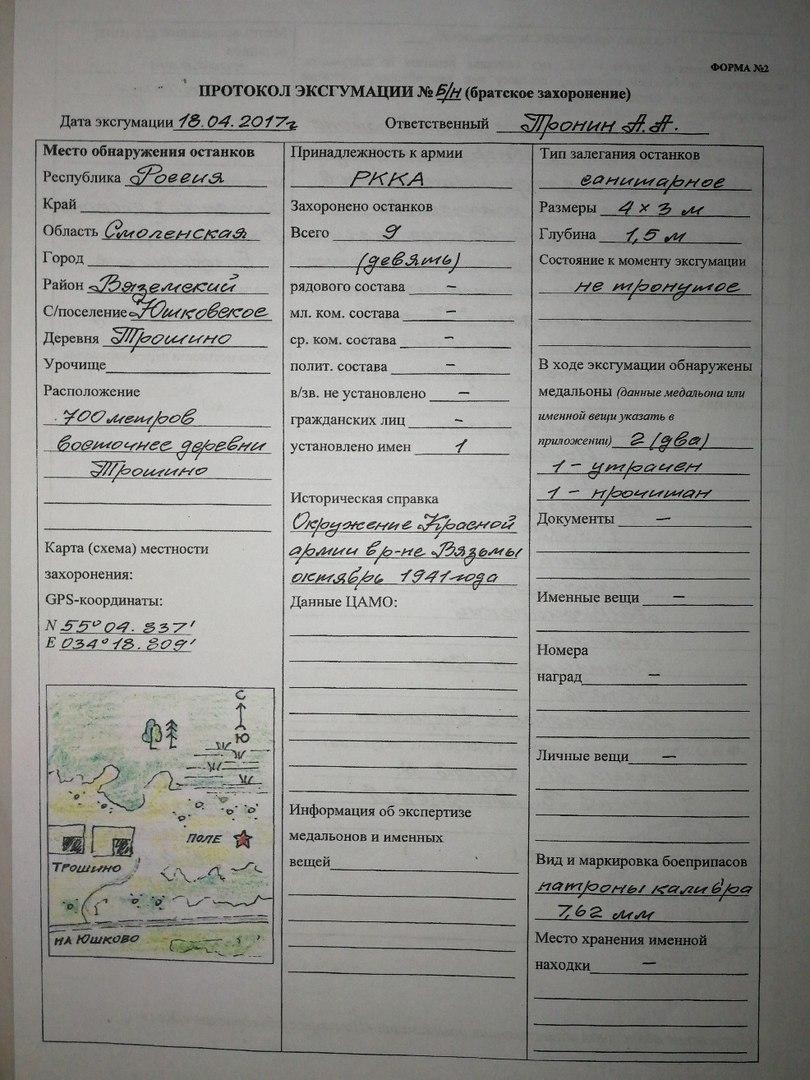 ФОРМА №2
ПРОТОКОЛ ЭКСГУМАЦИИ № Б/Н (братское захоронение)
Дата эксгумации 18.04.2017г Ответственный Тронин А.А.
Место обнаружения останков
Республика Россия
Край
Область Смоленская
Город
Район Вяземский
С/поселение Юшковское
Деревня Трошино
Урочище
Расположение
700 метров
восточнее деревни
Трошино
Карта (схема) местности
захоронения:
GPS-координаты:
N 55° 04. 837'
E 034° 18. 809'
С
Ю
ПОЛЕ
ТРОШИНО
НА ЮШКОВО
Принадлежность к армии
РККА
Захоронено останков
Всего 9
(девять)
рядового состава –
мл. ком. состава –
ср. ком. состава –
полит. состава –
в/зв. не установлено –
гражданских лиц –
установлено имен 1
Историческая справка
Окружение Красной
армии в р-не Вязьмы
октябрь 1941 года
Данные ЦАМО:
Информация об экспертизе
медальонов и именных
вещей
Тип залегания останков
санитарное
Размеры 4 × 3 м
Глубина 1,5 м
Состояние к моменту эксгумации
не тронутое
В ходе эксгумации обнаружены
медальоны (данные медальона или
именной вещи указать в
приложении) 2 (два)
1 - утрачен
1 - прочитан
Документы –
Именные вещи –
Номера
наград –
Личные вещи –
Вид и маркировка боеприпасов
патроны калибра
7,62 мм
Место хранения именной
находки –